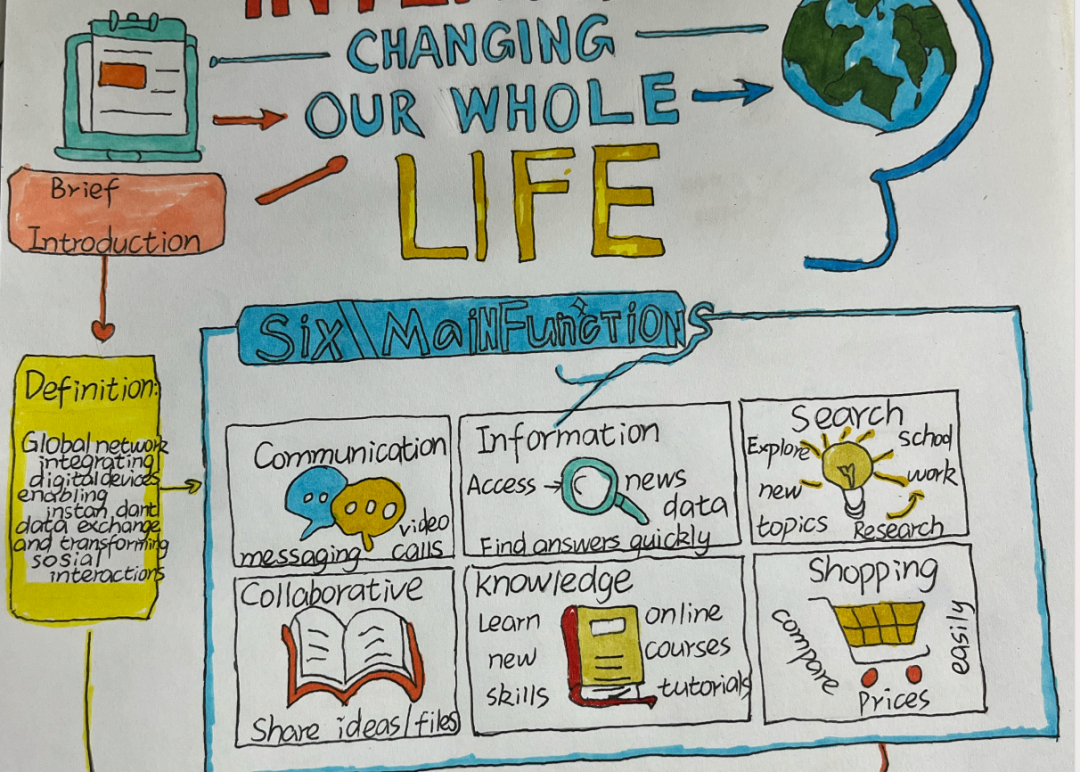 CHANGING
OUR WHOLE
LIFE
Brief
Introduction
Definition:
Global network
integrating
digital devices
enabling
instan dant
data exchange
and transforming
sosial
interactions
Six MainFunctions
Communication
messaging video calls
Information
Access → news
data
Find answers quickly
Search
Explore new topics
School work
Research
Collaborative
Share ideas/files
knowledge
Learn new skills
online courses
tutorials
Shopping
compare Prices easily